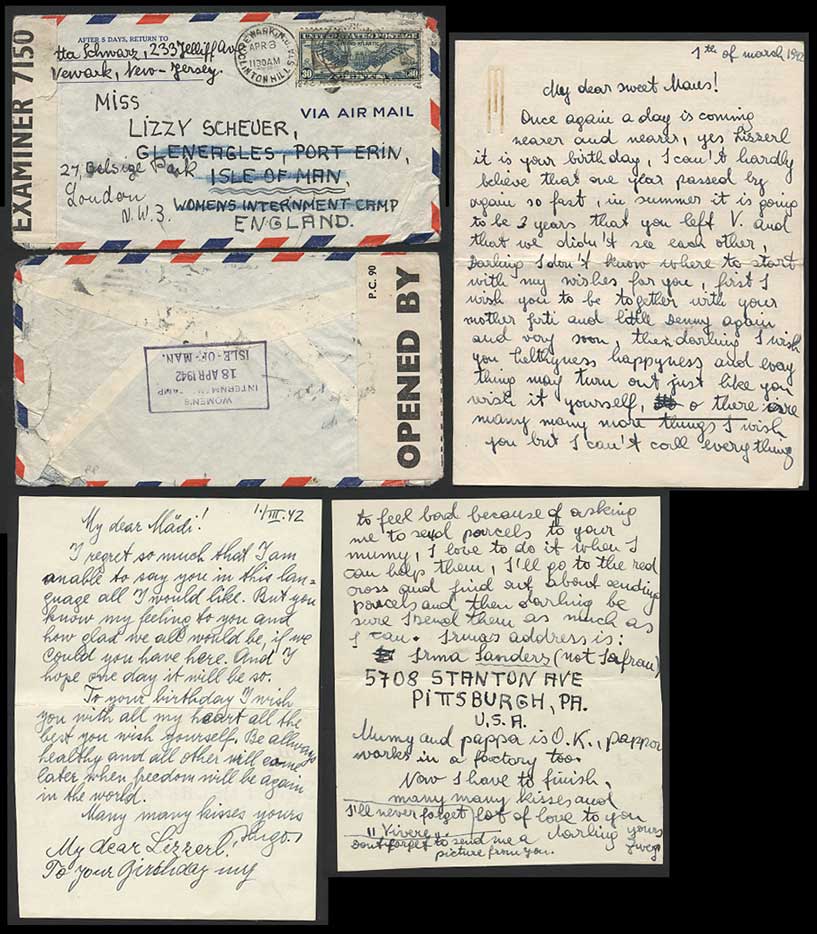 EXAMINER 7150
AFTER 5 DAYS, RETURN TO
tta Schwarz, 233 Jelliff Ave
Newark, New-Jersey.
NEWARK, N.J.
APR 8
1130 AM
CLINTON HILL STA.
30 30
VIA AIR MAIL
Miss
LIZZY SCHEUER,
GLENERGLES, PORT ERIN,
ISLE OF MAN,
WOMENS INTERNMENT CAMP
ENGLAND.
27, Belsize Park
London
N.W.3.
P.C. 90
OPENED BY
WOMEN'S
INTERNMENT CAMP
18 APR 1942
ISLE-OF-MAN.
1th of march 1942
My dear sweet Maus!
Once again a day is coming
nearer and nearer, yes Lisserl
it is your birthday, I can't hardly
believe that one year passed by
again so fast, in summer it is going
to be 3 years that you left V. and
that we didn't see each other,
Darling I don't know where to start
with my wishes for you, first I
wish you to be together with your
mother forti and little Denny again
and very soon, then darling I wish
you helthyness happyness and evey
thing may turn out just like you
wish it yourself, o there are
many many more things I wish
you but I can't coll everything
1./III.42
My dear Mädi!
I regret so much that I am
anable to say you in this lan-
guage all I would like. But you
know my feeling to you and
how glad we all would be, if we
could you have here. And I
hope one day it will be so.
To your birthday I wish
you with all my heart all the
best you wish yourself. Be allways
healthy and all other will came
later when freedom will be again
in the world.
Many many kisses yours
My dear Lizzerl!
To your Girthday my
to feel bad because of asking
me to send parcels to your
mumy, I love to do it when I
can help them, I'll go to the red
cross and find out about sending
parcels and then darling be
sure I send them as much as
I can. Irmas address is:
Irma Sanders (not Safrau)
5708 STANTON AVE
PITTSBURGH, PA.
U.S.A.
Mumy and pappa is O.K., pappa
works in a factory too.
Now I have to finish,
many many kisses and
lot of love to you
darling yours
I'll never forget
"Vivere"
Dont forget to send me a
picture from you.